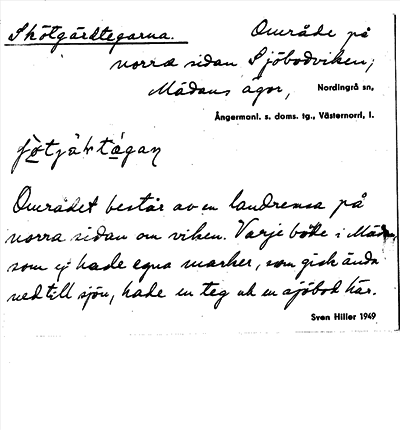 Skötgärdtegarna. Område på
norra sidan Sjöbodviken,
Mädans ägor, Nordingrå sn,
Ångermanl. s. doms. tg., Västernorrl. l.
Området består av en landremsa på
norra sidan om viken. Varje böle i Mädan,
som ej hade egna marker, som gick ända
ned till sjön, hade en teg och en sjöbod här.
Sven Hiller 1949